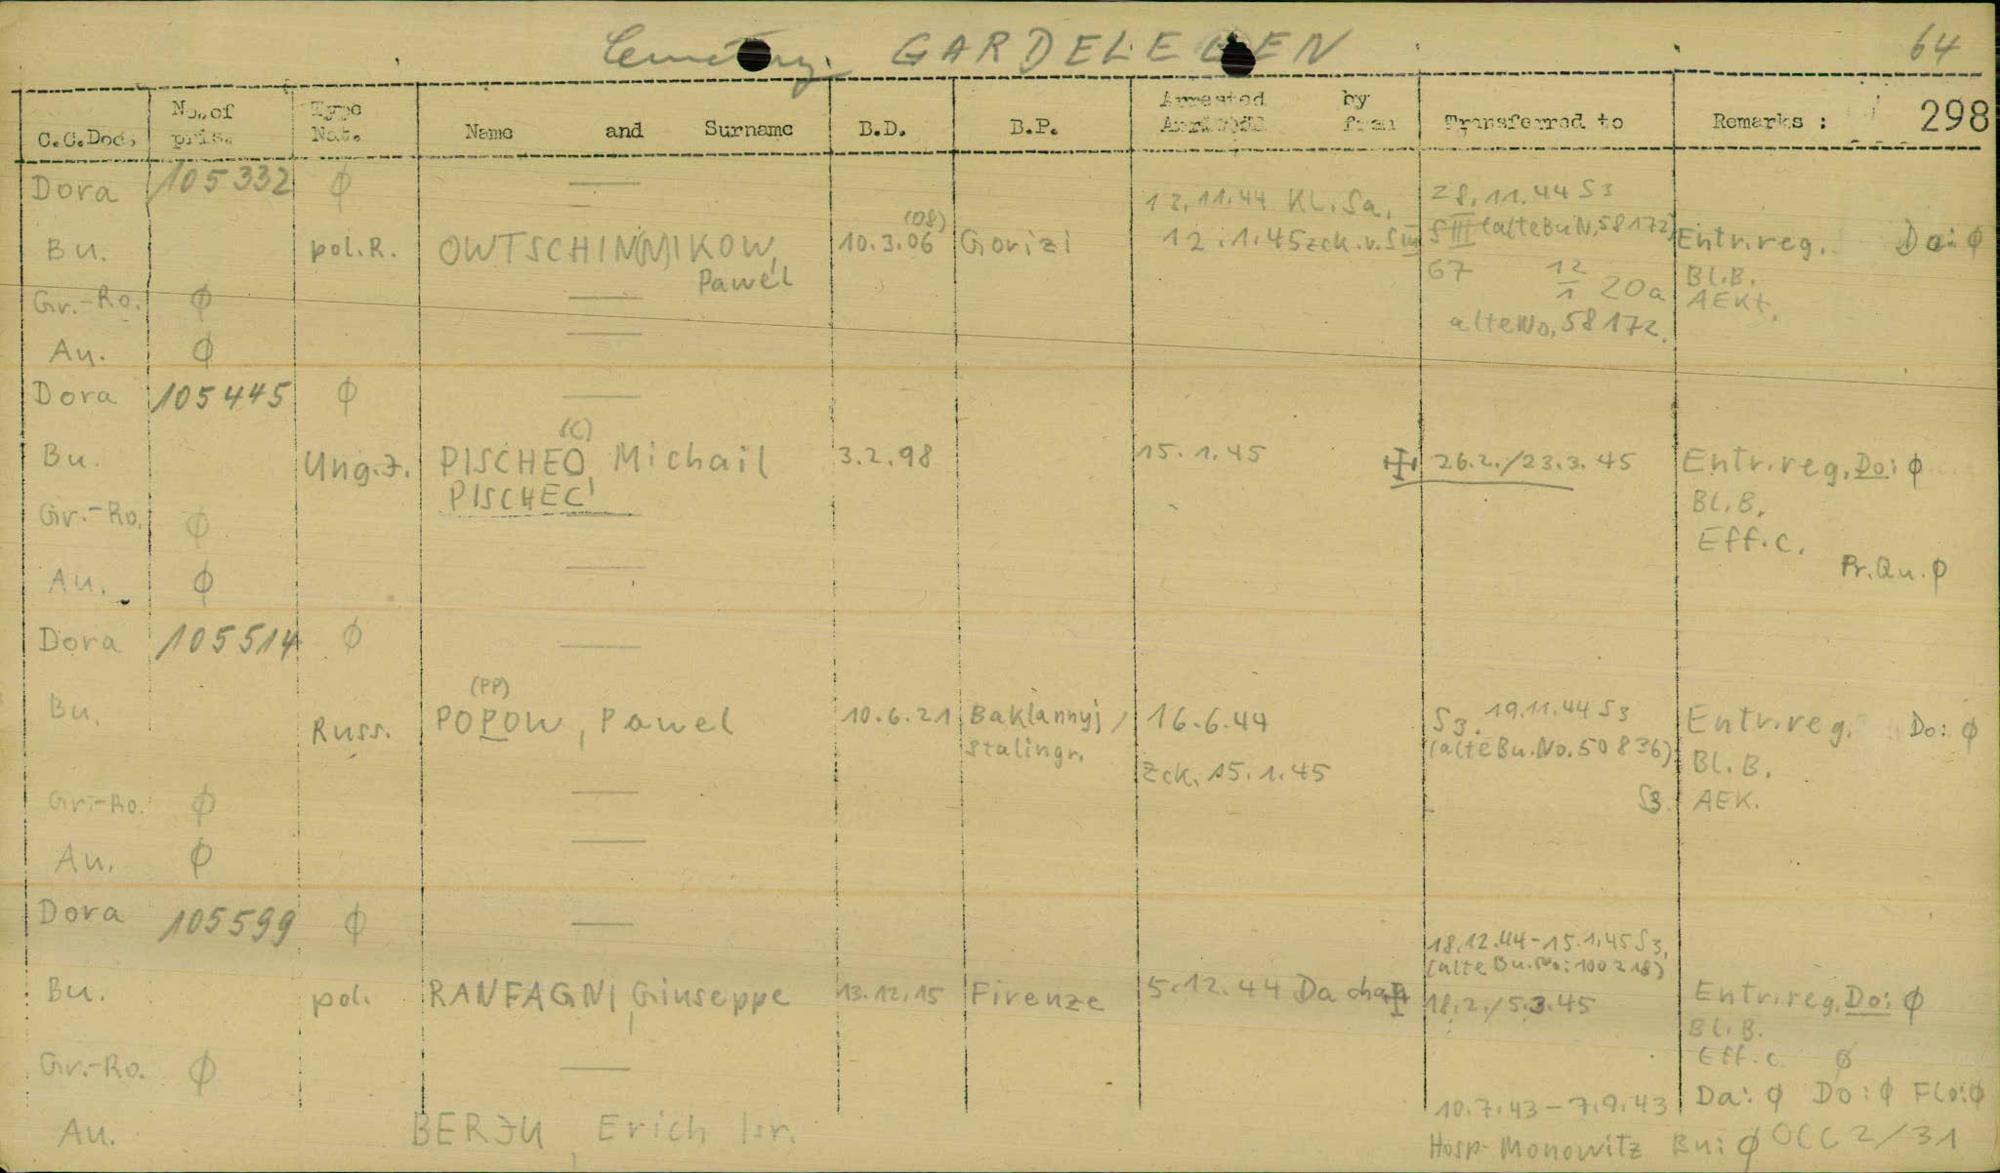 Cemetery. GARDELEGEN 64
C.C.Doc. No. of pris. Type Nat. Name and Surname B.D. B.P. Arrested by Transferred to Remarks : 298
Dora 105332 ∅ — 12.11.44 Kl.Sa. 28.11.44 S3
Bu. pol.R. OWTSCHIN(N)IKOW, Pawel 10.3.06 (08) Gorizi 12.1.45 zck.v. SIII SIII (alte Bu N, 58172) Entr.reg. Do: ∅
67 12/1 20a Bl.B.
Gr.-Ro. ∅ — AEKt.
alte No, 58172.
Au. ∅ —
Dora 105445 ∅ —
(C)
Bu. Ung.J. PISCHEO, Michail 3.2.98 15.1.45 26.2./23.3.45 Entr.reg. Do: ∅
PISCHEC! Bl.B.
Gr.-Ro. ∅ Eff.c.
Au. ∅ — Pr.Qu. ∅
Dora 105514 ∅ —
(PP)
Bu. Russ. POPOW, Pawel 10.6.21 Baklannyj / 16.6.44 S3. 19.11.44 S3 Entr.reg. Do: ∅
Stalingr. (alte Bu.No. 50836) Bl.B.
zck. 15.1.45
Gr.-Ro. ∅ — S3. AEK.
Au. ∅ —
Dora 105599 ∅ —
18.12.44-15.1.45 S3,
(alte Bu.No: 100218)
Bu. pol. RANFAGNI, Giuseppe 13.12.15 Firenze 5.12.44 Dachau 18.2./5.3.45 Entr.reg. Do: ∅
Bl.B.
Gr.-Ro. ∅ — Eff.c. ∅
10.7.43 - 7.9.43 Da: ∅ Do: ∅ Flo: ∅
Au. BERJU, Erich Isr. Hosp. Monowitz Bu: ∅ OCC 2/31